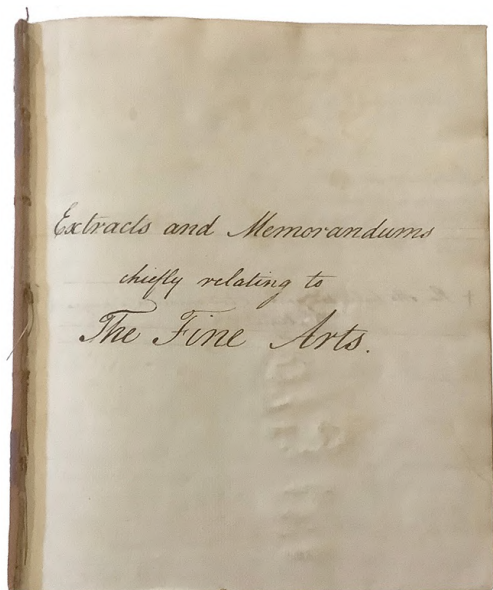 Extracts and Memorandums
chiefly relating to
The Fine Arts.